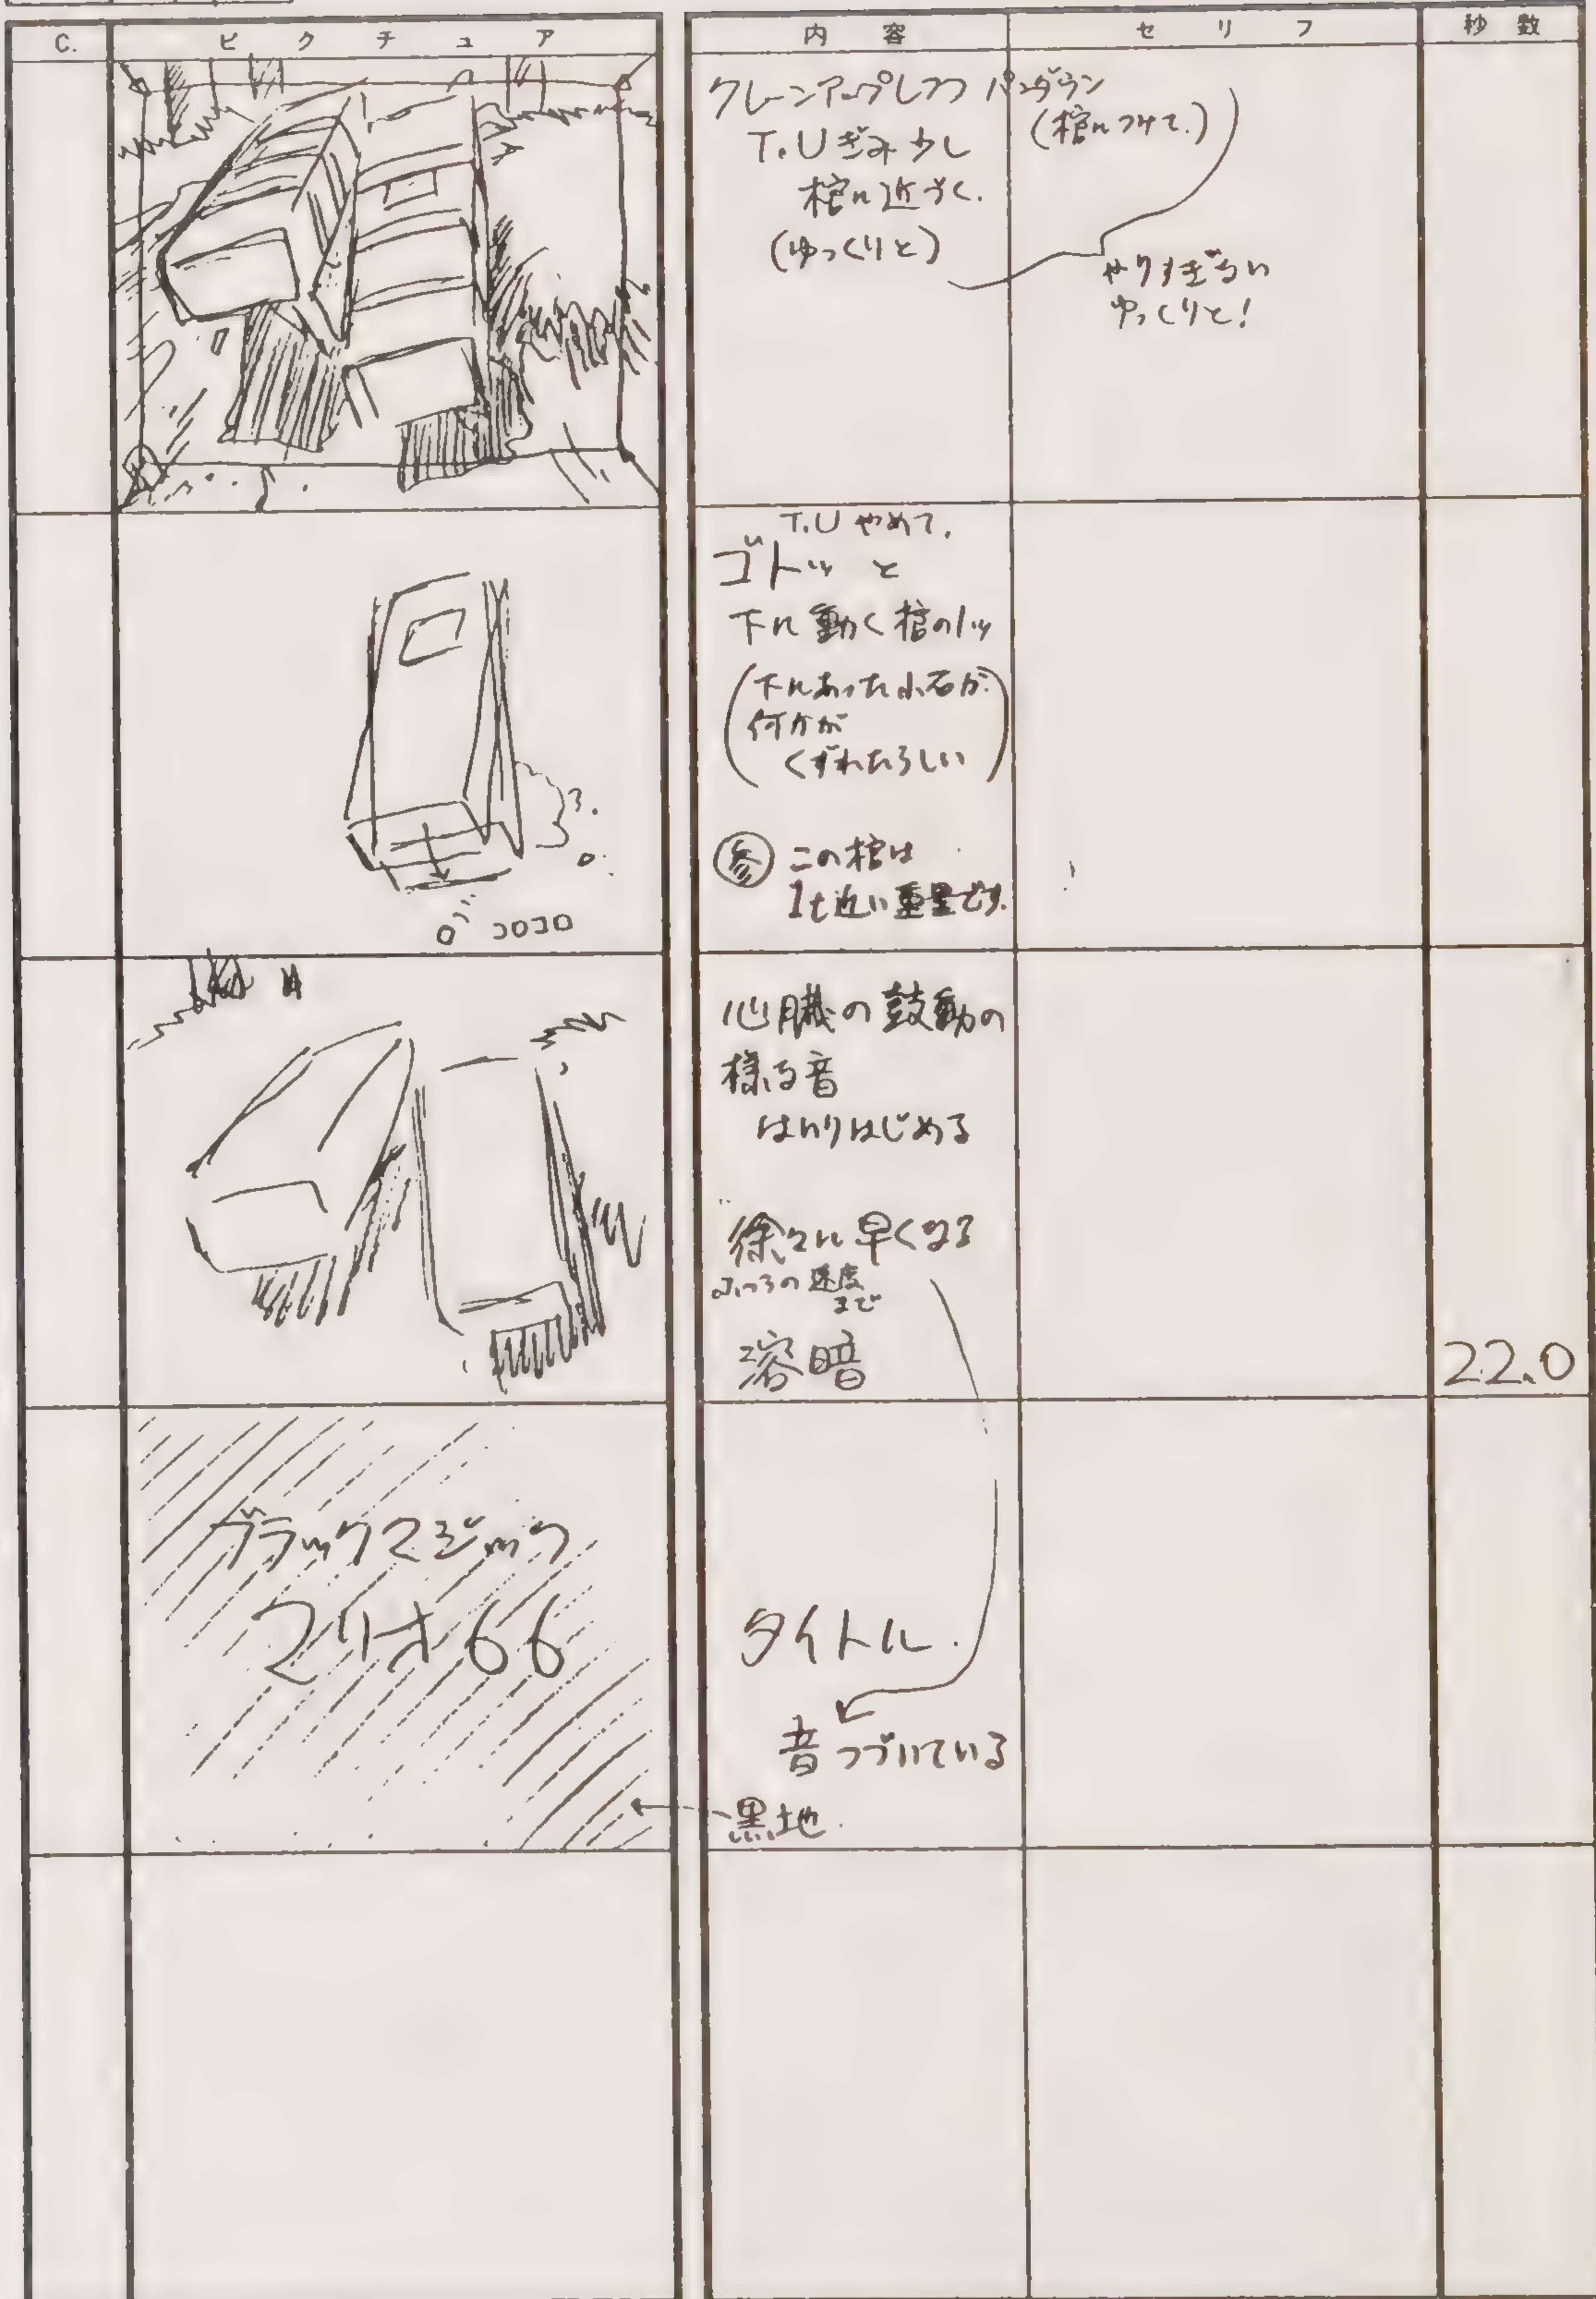 C.
ピクチュア
内容
セリフ
秒数
クレーンアップしつつ パンダウン
(棺につけて.)
T.Uぎみ 少し
棺に近づく.
(ゆっくりと)
やりすぎない
ゆっくりと!
T.U やめて.
ゴトッ と
下に動く棺の1ッ
(下にあった小石が
何かが
くずれたらしい)
参 この棺は
1t近い重量です.
コロコロ
心臓の鼓動の
様な音
はいりはじめる
徐々に早くなる
ふつうの速度
まで
溶暗
22.0
ブラックマジック
マリオ66
タイトル.
音つづいている
黒地.